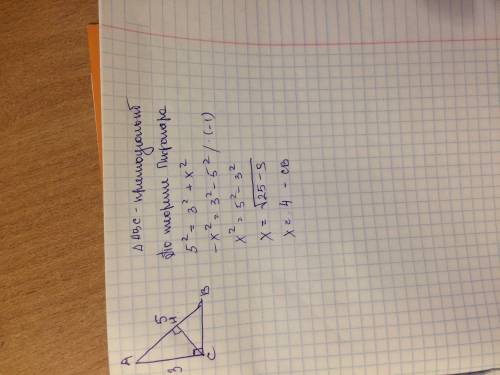 △ABC - прямоугольный
По теореме Пифагора
5² = 3² + x²
-x² = 3² - 5² / (-1)
x² = 5² - 3²
x = √25 - 9
x = 4 - CB
A
5
H
B
3
C